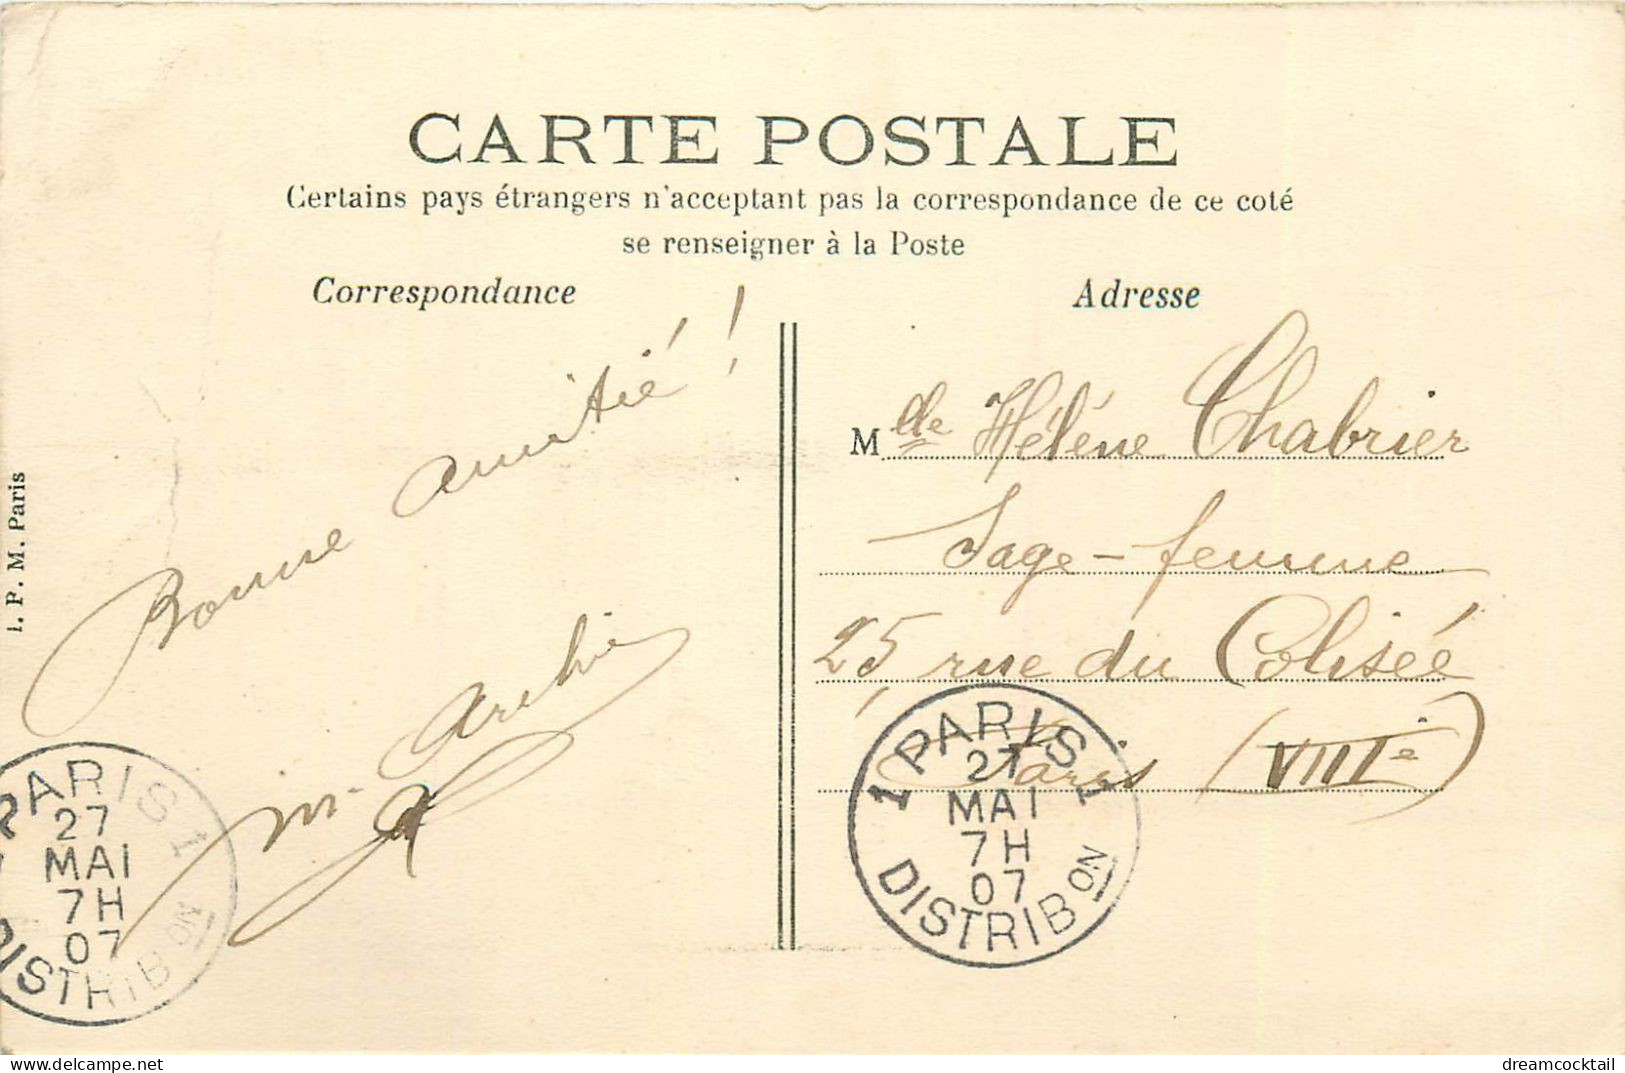 CARTE POSTALE
Certains pays étrangers n'acceptant pas la correspondance de ce coté
se renseigner à la Poste
Correspondance
Adresse
Bonne amitié !
I. P. M. Paris
Mlle Hélène Chabrier
Sage-femme
25 rue du Colisée
Paris (VIIIe)
PARIS 1
27
MAI
7H
07
DISTRIBON
1 PARIS 1
27
MAI
7H
07
DISTRIBON
delcampe.net
dreamcocktail